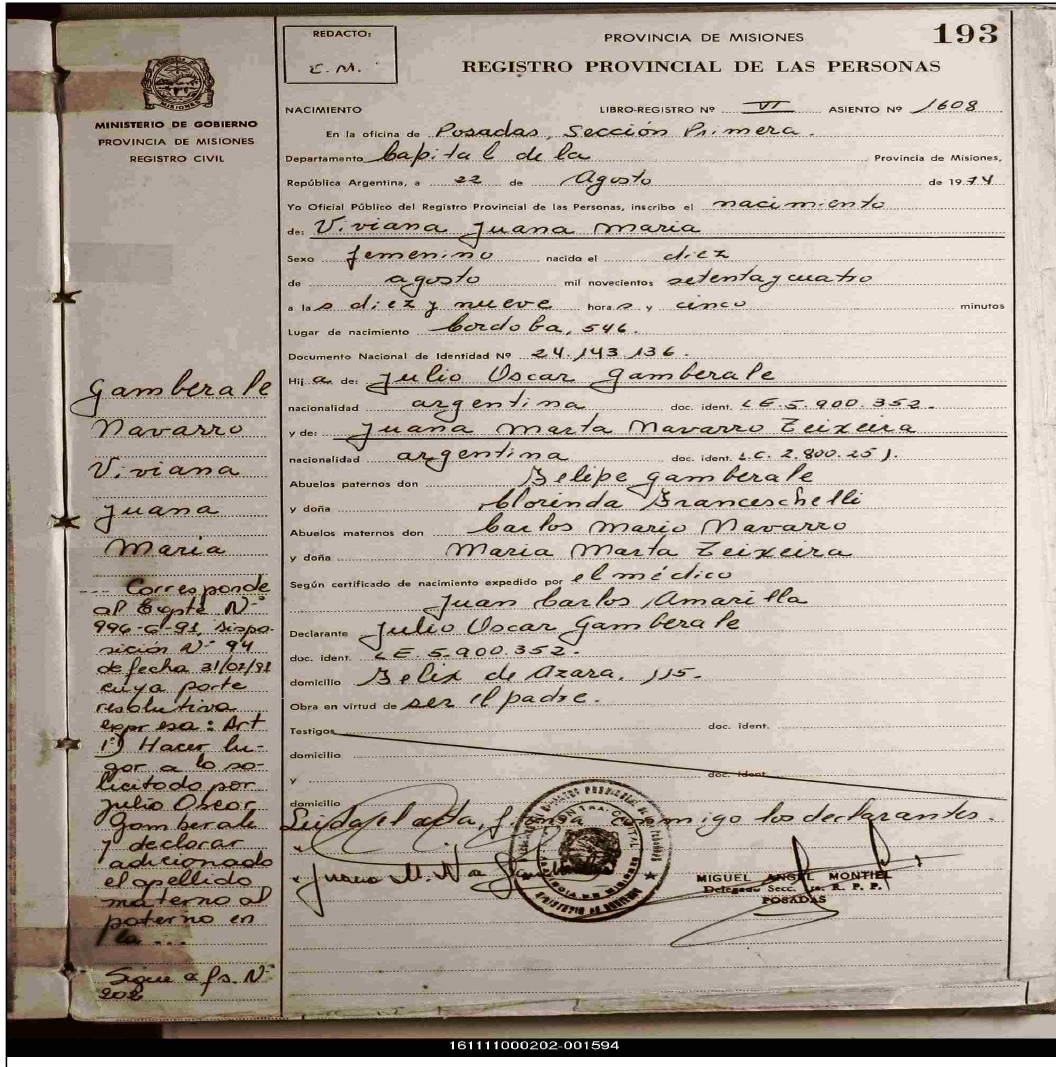 193
REDACTO:
C. M.
PROVINCIA DE MISIONES
REGISTRO PROVINCIAL DE LAS PERSONAS
MISIONES
MINISTERIO DE GOBIERNO
PROVINCIA DE MISIONES
REGISTRO CIVIL
NACIMIENTO LIBRO-REGISTRO Nº VI ASIENTO Nº 1608
En la oficina de Posadas, Sección Primera.
Departamento Capital de la Provincia de Misiones,
República Argentina, a 22 de Agosto de 1974
Yo Oficial Público del Registro Provincial de las Personas, inscribo el nacimiento
de: Viviana Juana Maria
Sexo femenino nacido el diez
de agosto mil novecientos setenta y cuatro
a las diez y nueve horas y cinco minutos
Lugar de nacimiento Cordoba, 546.
Documento Nacional de Identidad Nº 24.143.136.
Hija de: Julio Oscar Gamberale
nacionalidad argentina doc. ident. L.E. 5.900.352.
y de: Juana Marta Navarro Teixeira
nacionalidad argentina doc. ident. L.C. 2.800.251.
Abuelos paternos don Felipe Gamberale
y doña Clorinda Franceschelli
Abuelos maternos don Carlos Mario Navarro
y doña Maria Marta Teixeira
Según certificado de nacimiento expedido por el médico
Juan Carlos Amarilla
Declarante Julio Oscar Gamberale
doc. ident. L.E. 5.900.352.
domicilio Felix de Azara, 115.
Obra en virtud de ser el padre.
Testigos doc. ident.
domicilio
y doc. ident.
domicilio
Leida el acta, firma conmigo los declarantes.
MIGUEL ANGEL MONTIEL
Delegado Secc. 1a. R. P. P.
POSADAS
Gamberale
Navarro
Viviana
Juana
Maria
--- Corresponde
al Expte Nº
996-G-91, Dispo-
sición Nº 94
de fecha 31/07/91
cuya parte
resolutiva
expresa: Art
1º) Hacer lu-
gar a lo so-
licitado por
Julio Oscar
Gamberale
y declarar
adicionado
el apellido
materno al
paterno en
la ...
Sigue a fs. Nº
202
161111000202-001594